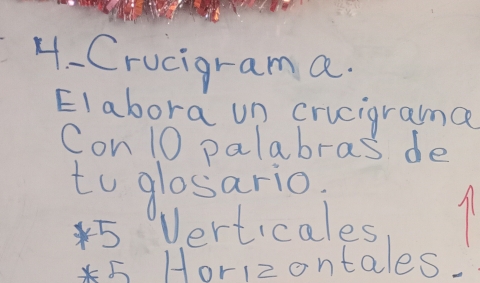 4.- Crucigrama.
Elabora un crucigrama
Con 10 palabras de
tu glosario.
*5 Verticales
*5 Horizontales.